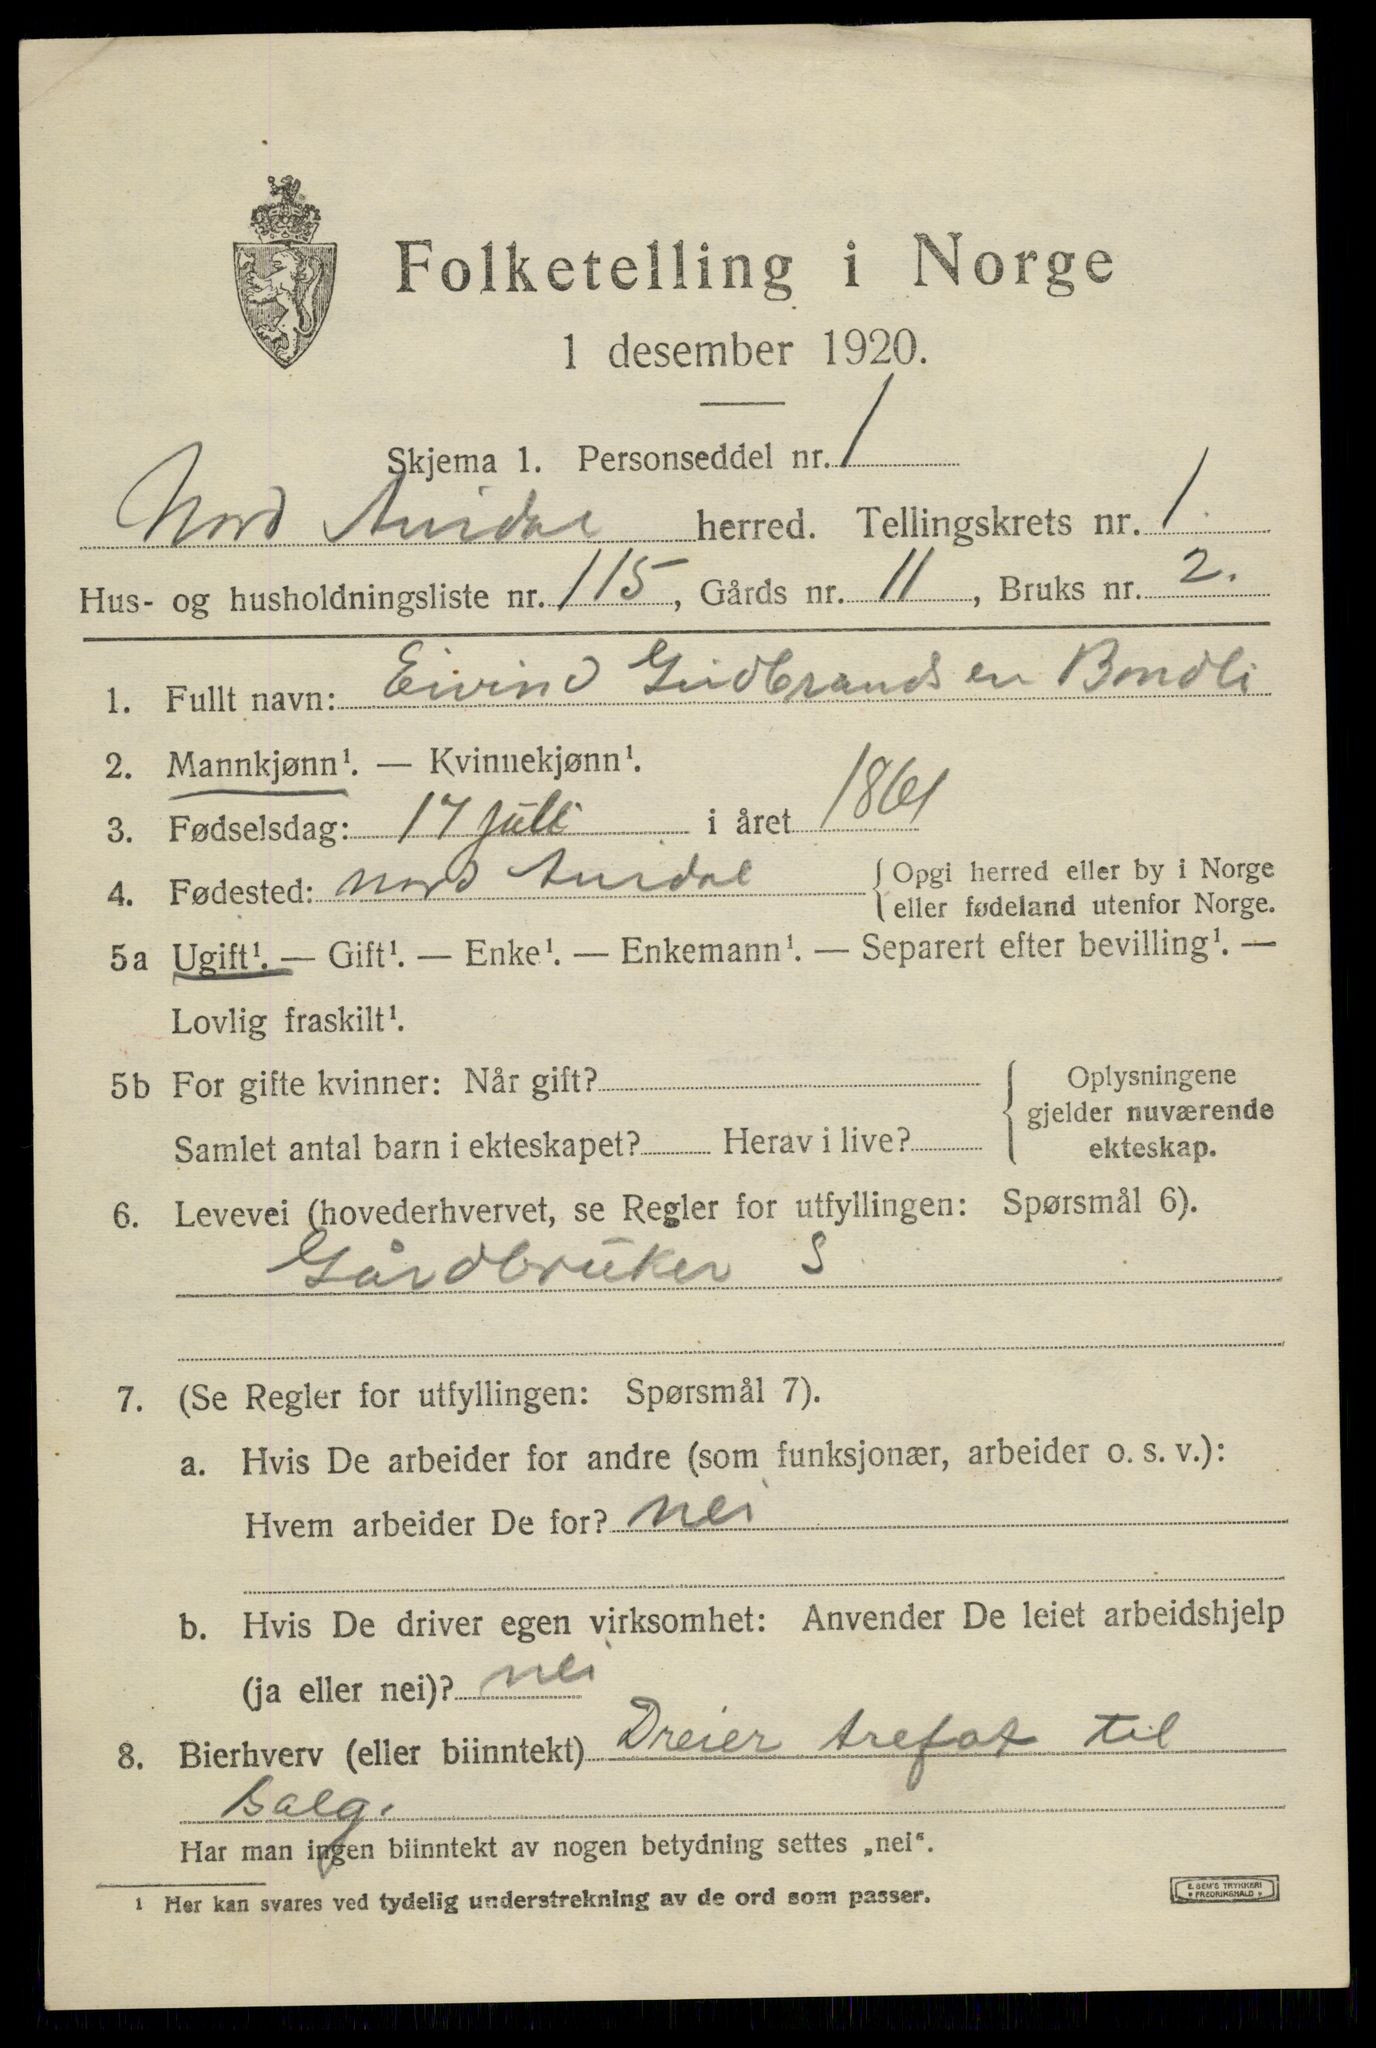 Folketelling i Norge
1 desember 1920.
Skjema 1. Personseddel nr. 1
Nord Aurdal herred. Tellingskrets nr. 1.
Hus- og husholdningsliste nr. 115, Gårds nr. 11, Bruks nr. 2.
1. Fullt navn: Eivind Gudbrandsen Bondli
2. Mannkjønn¹. — Kvinnekjønn¹.
3. Fødselsdag: 17 juli i året 1861
4. Fødested: Nord Aurdal {Opgi herred eller by i Norge
eller fødeland utenfor Norge.
5a Ugift¹. — Gift¹. — Enke¹. — Enkemann¹. — Separert efter bevilling¹. —
Lovlig fraskilt¹.
5b For gifte kvinner: Når gift? { Oplysningene
gjelder nuværende
Samlet antal barn i ekteskapet? Herav i live?
ekteskap.
6. Levevei (hovederhvervet, se Regler for utfyllingen: Spørsmål 6).
Gårdbruker S
7. (Se Regler for utfyllingen: Spørsmål 7).
a. Hvis De arbeider for andre (som funksjonær, arbeider o. s. v.):
Hvem arbeider De for? nei
b. Hvis De driver egen virksomhet: Anvender De leiet arbeidshjelp
(ja eller nei)? nei
8. Bierhverv (eller biinntekt) Dreier trefat til
salg.
Har man ingen biinntekt av nogen betydning settes „nei“.
1 Her kan svares ved tydelig understrekning av de ord som passer.
E. SEM'S TRYKKERI
FREDRIKSHALD